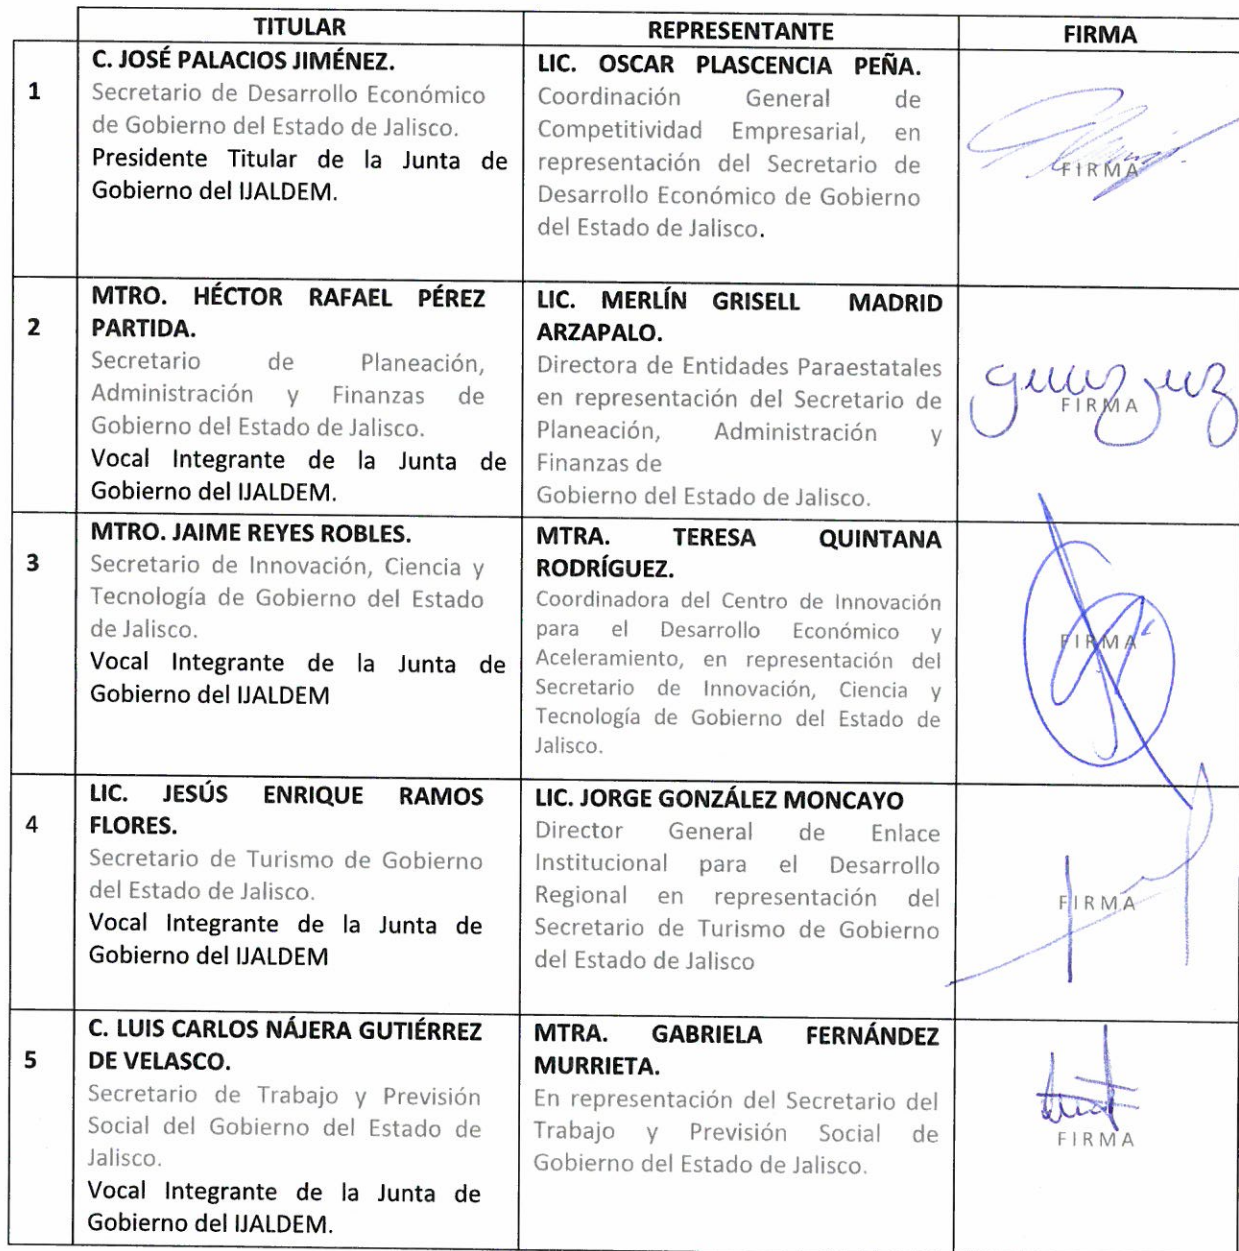 TITULAR REPRESENTANTE FIRMA
1
C. JOSÉ PALACIOS JIMÉNEZ.
Secretario de Desarrollo Económico
de Gobierno del Estado de Jalisco.
Presidente Titular de la Junta de
Gobierno del IJALDEM.
LIC. OSCAR PLASCENCIA PEÑA.
Coordinación General de
Competitividad Empresarial, en
representación del Secretario de
Desarrollo Económico de Gobierno
del Estado de Jalisco.
FIRMA
2
MTRO. HÉCTOR RAFAEL PÉREZ
PARTIDA.
Secretario de Planeación,
Administración y Finanzas de
Gobierno del Estado de Jalisco.
Vocal Integrante de la Junta de
Gobierno del IJALDEM.
LIC. MERLÍN GRISELL MADRID
ARZAPALO.
Directora de Entidades Paraestatales
en representación del Secretario de
Planeación, Administración y
Finanzas de
Gobierno del Estado de Jalisco.
FIRMA
3
MTRO. JAIME REYES ROBLES.
Secretario de Innovación, Ciencia y
Tecnología de Gobierno del Estado
de Jalisco.
Vocal Integrante de la Junta de
Gobierno del IJALDEM
MTRA. TERESA QUINTANA
RODRÍGUEZ.
Coordinadora del Centro de Innovación
para el Desarrollo Económico y
Aceleramiento, en representación del
Secretario de Innovación, Ciencia y
Tecnología de Gobierno del Estado de
Jalisco.
FIRMA
4
LIC. JESÚS ENRIQUE RAMOS
FLORES.
Secretario de Turismo de Gobierno
del Estado de Jalisco.
Vocal Integrante de la Junta de
Gobierno del IJALDEM
LIC. JORGE GONZÁLEZ MONCAYO
Director General de Enlace
Institucional para el Desarrollo
Regional en representación del
Secretario de Turismo de Gobierno
del Estado de Jalisco
FIRMA
5
C. LUIS CARLOS NÁJERA GUTIÉRREZ
DE VELASCO.
Secretario de Trabajo y Previsión
Social del Gobierno del Estado de
Jalisco.
Vocal Integrante de la Junta de
Gobierno del IJALDEM.
MTRA. GABRIELA FERNÁNDEZ
MURRIETA.
En representación del Secretario del
Trabajo y Previsión Social de
Gobierno del Estado de Jalisco.
FIRMA